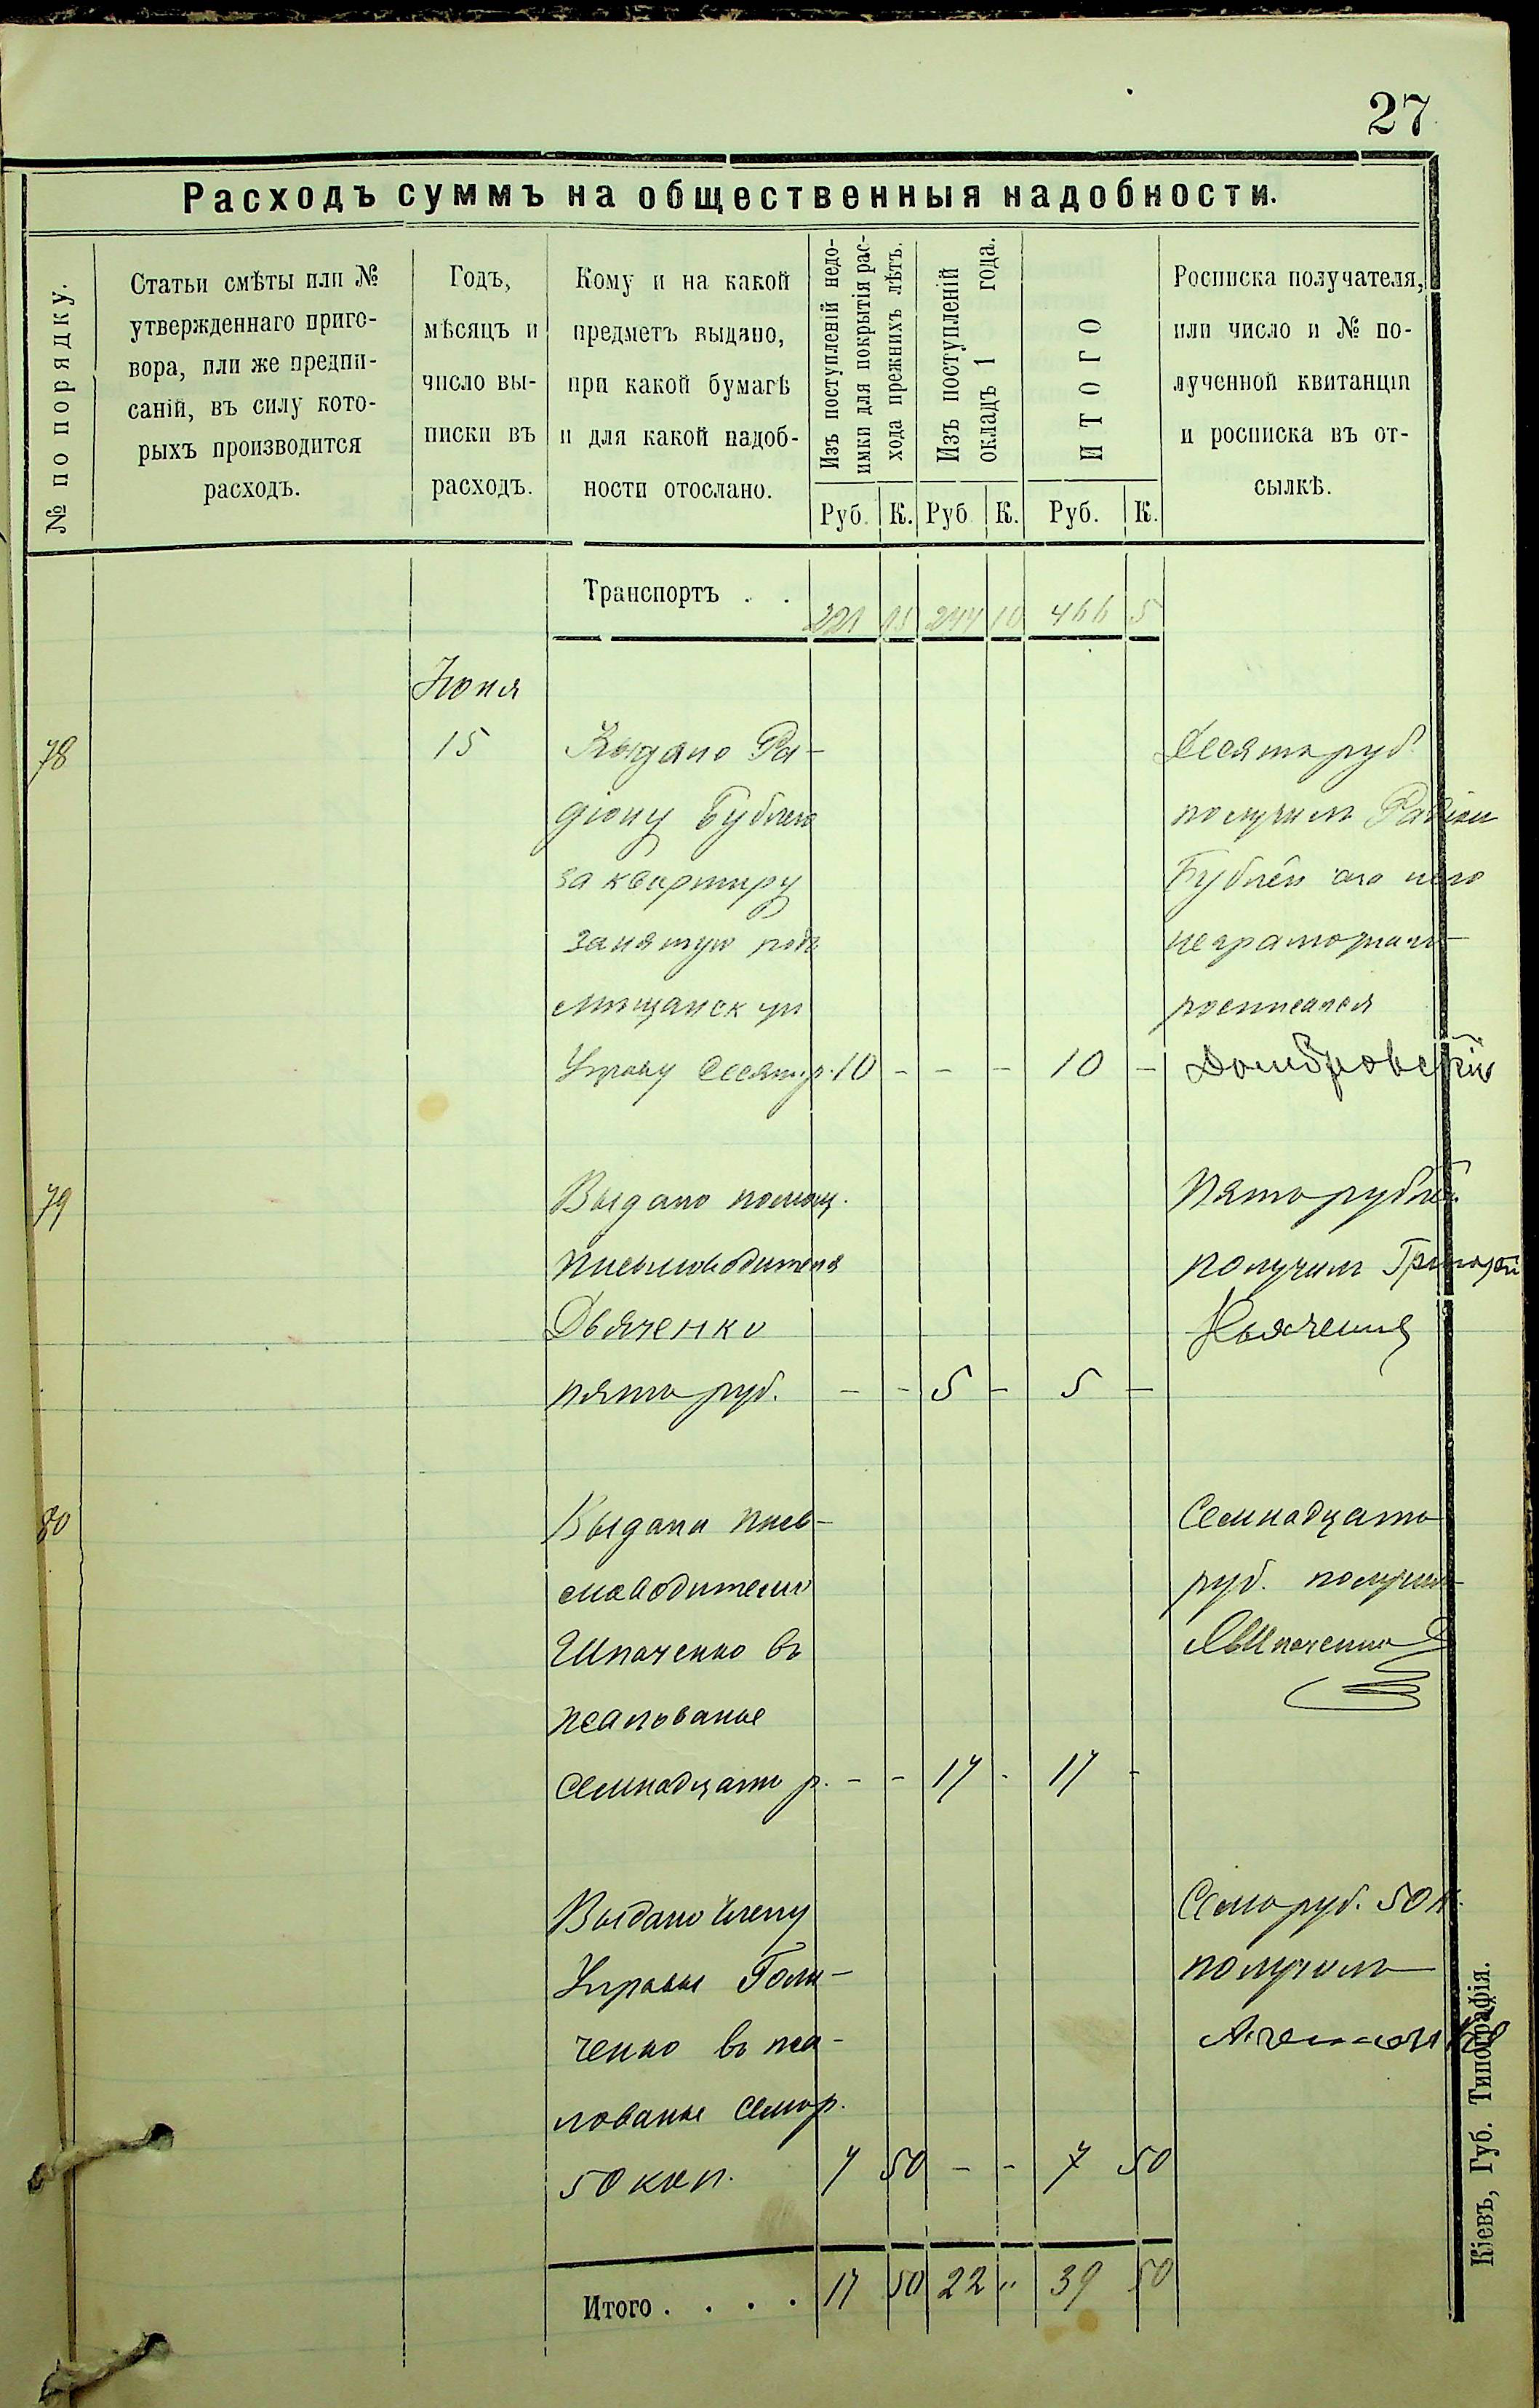 27
Расходъ суммъ на общественныя надобности.
№ по порядку.
Статьи смѣты или №
утвержденнаго приго-
вора, или же предпи-
саній, въ силу кото-
рыхъ производится
расходъ.
Годъ,
мѣсяцъ и
число вы-
писки въ
расходъ.
Кому и на какой
предметъ выдано,
при какой бумагѣ
и для какой надоб-
ности отослано.
Изъ поступленій недо-
имки для покрытія рас-
хода прежнихъ лѣтъ.
Изъ поступленій
окладъ 1 года.
ИТОГО
Росписка получателя,
или число и № по-
лученной квитанціи
и росписка въ от-
сылкѣ.
Руб. К. Руб К. Руб. К.
Транспортъ . . 221 95 244 10 466 5
Іюня
78 15 Выдано Ра- Десять руб.
діону Бублею получилъ Радіон
за квартиру Бублей а за него
занятую подъ неграмотнаго
мѣщанскую росписался
Управу десять р. 10 - - - 10 - Домбровскій
79 Выдано помощ. Пять рублей
письмоводителя получилъ Григорій
Дьяченко Дьяченко
пять руб. - - 5 - 5 -
80 Выдано пись- Семнадцать
моводителю руб. получилъ
Шпаченко въ Шпаченко
жалованье
семнадцать р. - - 17 - 17 -
Выдано Члену Семь руб. 50 к.
Управы Голи- получилъ
ченко въ жа-
лованье семь р.
50 коп. 7 50 - - 7 50
Итого . . . . 17 50 22 " 39 50
Кіевъ, Губ. Типографія.